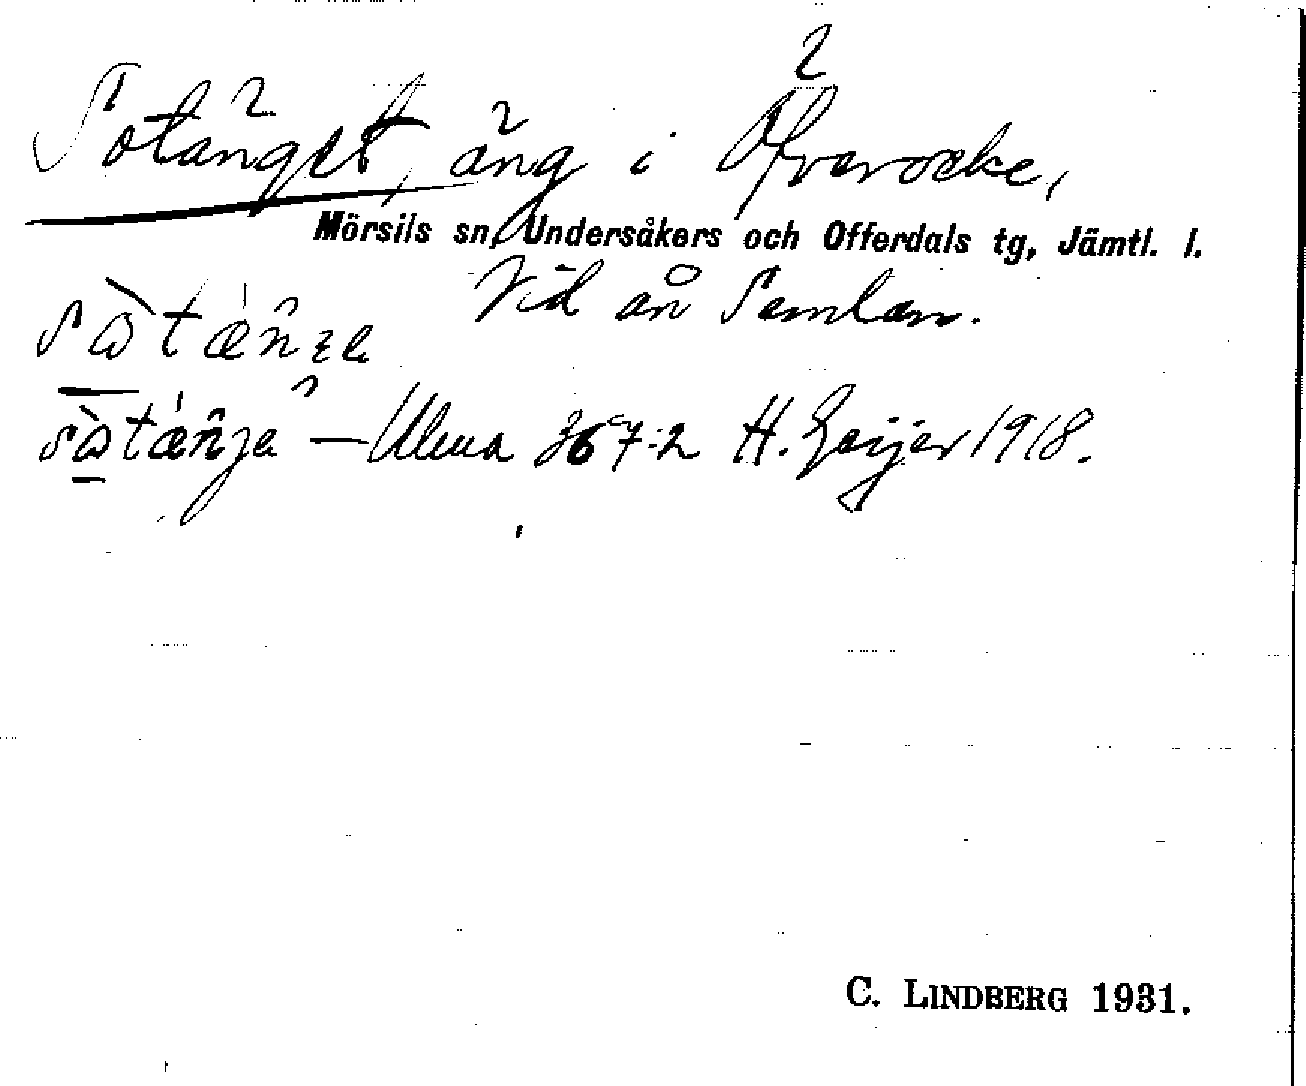 Sotänget, äng i Öfverocke,
Mörsils sn, Undersåkers och Offerdals tg, Jämtl. l.
Vid ån Semlan.
— Ulma 367:2 H. Geijer 1918.
C. LINDBERG 1931.